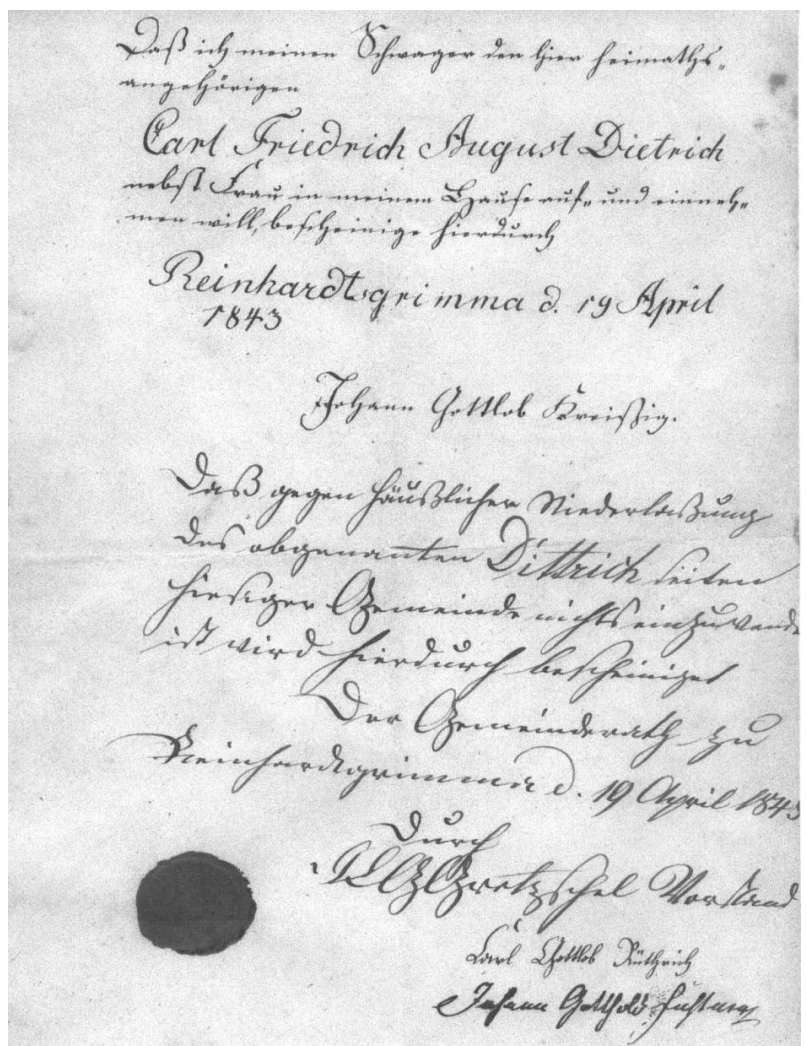 Daß ich meinen Schwager den hier heimaths-
angehörigen
Carl Friedrich August Dietrich
nebst Frau in meinem Hause auf- und einneh-
men will, bescheinige hierdurch
Reinhardtsgrimma d. 19 April
1843
Johann Gottlob Kreißig.
Daß gegen häußlicher Niederlaßung
des obgenannten Dittrich seiten
hiesiger Gemeinde nichts einzuwende
ist wird hierdurch bescheiniget
Der Gemeinderath zu
Reinhardtsgrimma d. 19 April 1843
Durch
Gretzschel Vorstand
Carl Gottlob Rüthrich
Johann Gotthold